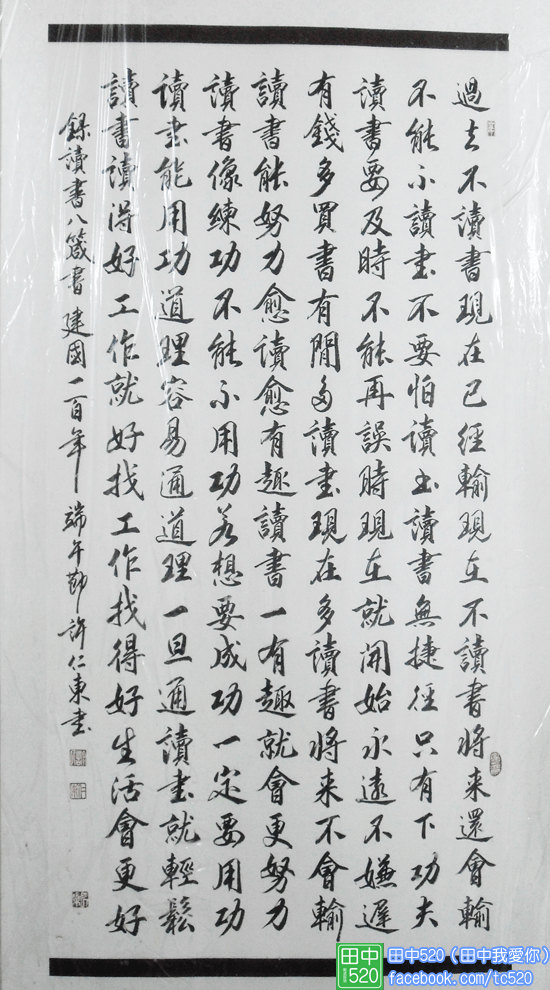 過去不讀書現在已經輸現在不讀書將來還會輸
不能不讀書不要怕讀書讀書無捷徑只有下功夫
讀書要及時不能再誤時現在就開始永遠不嫌遲
有錢多買書有閒多讀書現在多讀書將來不會輸
讀書能努力愈讀愈有趣讀書一有趣就會更努力
讀書像練功不能不用功若想要成功一定要用功
讀書能用功道理容易通道理一旦通讀書就輕鬆
讀書讀得好工作就好找工作找得好生活會更好
錄讀書八箴書建國一百年端午節許仁東書
田中520
田中520（田中我愛你）
facebook.com/tc520